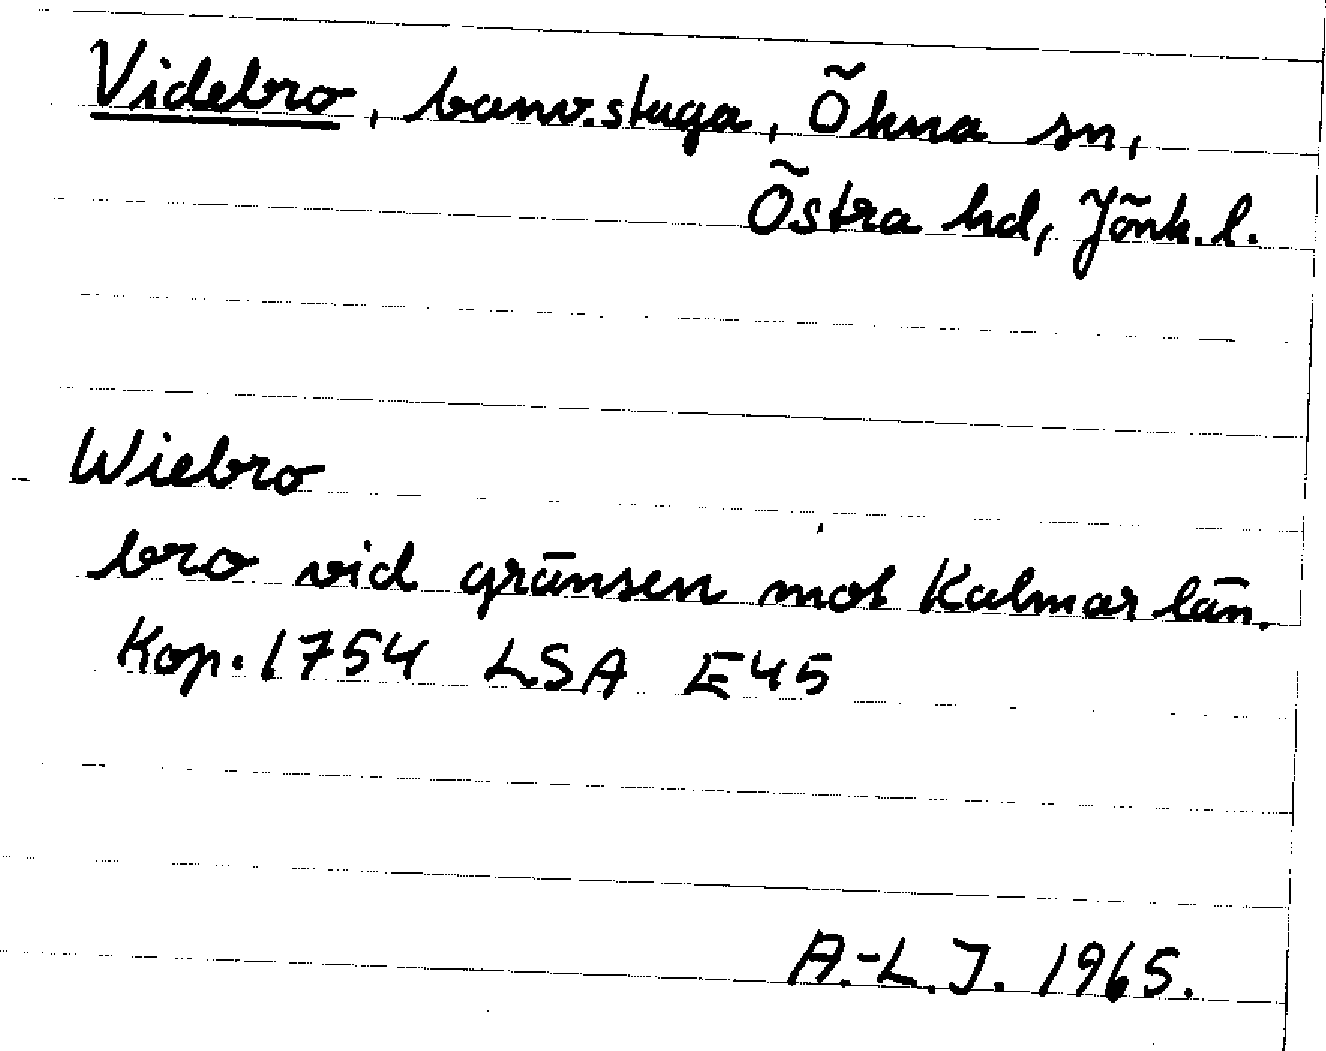 Videbro, banv.stuga, Ökna sn,
Östra hd, Jönk. l.
Wiebro
bro vid gränsen mot Kalmar län.
Kop. 1754 LSA E45
A.-L.J. 1965.